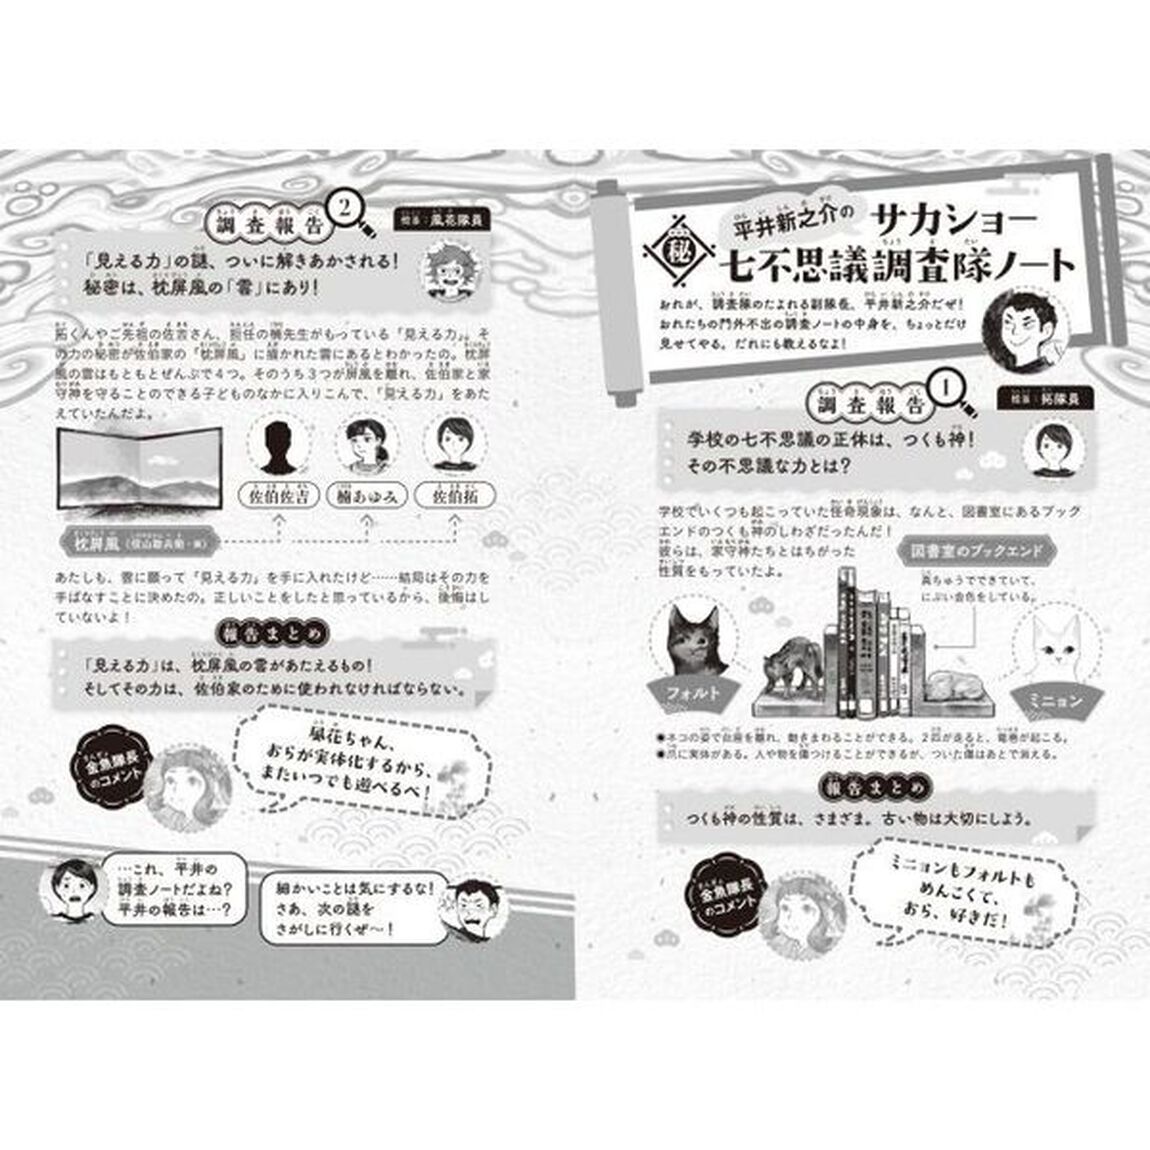 平井新之介の
サカショー
㊙
七不思議調査隊ノート
おれが、調査隊のたよれる副隊長、平井新之介だぜ!
おれたちの門外不出の調査ノートの中身を、ちょっとだけ
見せてやる。だれにも教えるなよ!
調査報告 1
担当:拓隊員
学校の七不思議の正体は、つくも神!
その不思議な力とは?
学校でいくつも起こっていた怪奇現象は、なんと、図書室にあるブック
エンドのつくも神のしわざだったんだ!
彼らは、家守神たちとはちがった
性質をもっていたよ。
図書室のブックエンド
真ちゅうでできていて、
にぶい金色をしている。
フォルト
ミニョン
●ネコの姿で台座を離れ、動きまわることができる。2匹が走ると、竜巻が起こる。
●爪に実体がある。人や物を傷つけることができるが、ついた傷はあとで消える。
報告まとめ
つくも神の性質は、さまざま。古い物は大切にしよう。
金魚隊長
のコメント
ミニョンもフォルトも
めんこくて、
おら、好きだ!
調査報告 2
担当:風花隊員
「見える力」の謎、ついに解きあかされる!
秘密は、枕屏風の「雲」にあり!
拓くんやご先祖の佐吉さん、担任の楠先生がもっている「見える力」。そ
の力の秘密が佐伯家の「枕屏風」に描かれた雲にあるとわかったの。枕屏
風の雲はもともとぜんぶで4つ。そのうち3つが屏風を離れ、佐伯家と家
守神を守ることのできる子どものなかに入りこんで、「見える力」をあた
えていたんだよ。
佐伯佐吉
楠あゆみ
佐伯拓
枕屏風
あたしも、雲に願って「見える力」を手に入れたけど……結局はその力を
手ばなすことに決めたの。正しいことをしたと思っているから、後悔はし
ていないよ!
報告まとめ
「見える力」は、枕屏風の雲があたえるもの!
そしてその力は、佐伯家のために使われなければならない。
金魚隊長
のコメント
風花ちゃん、
おらが実体化するから、
またいつでも遊べるべ!
…これ、平井の
調査ノートだよね?
平井の報告は…?
細かいことは気にするな!
さあ、次の謎を
さがしに行くぜ〜!